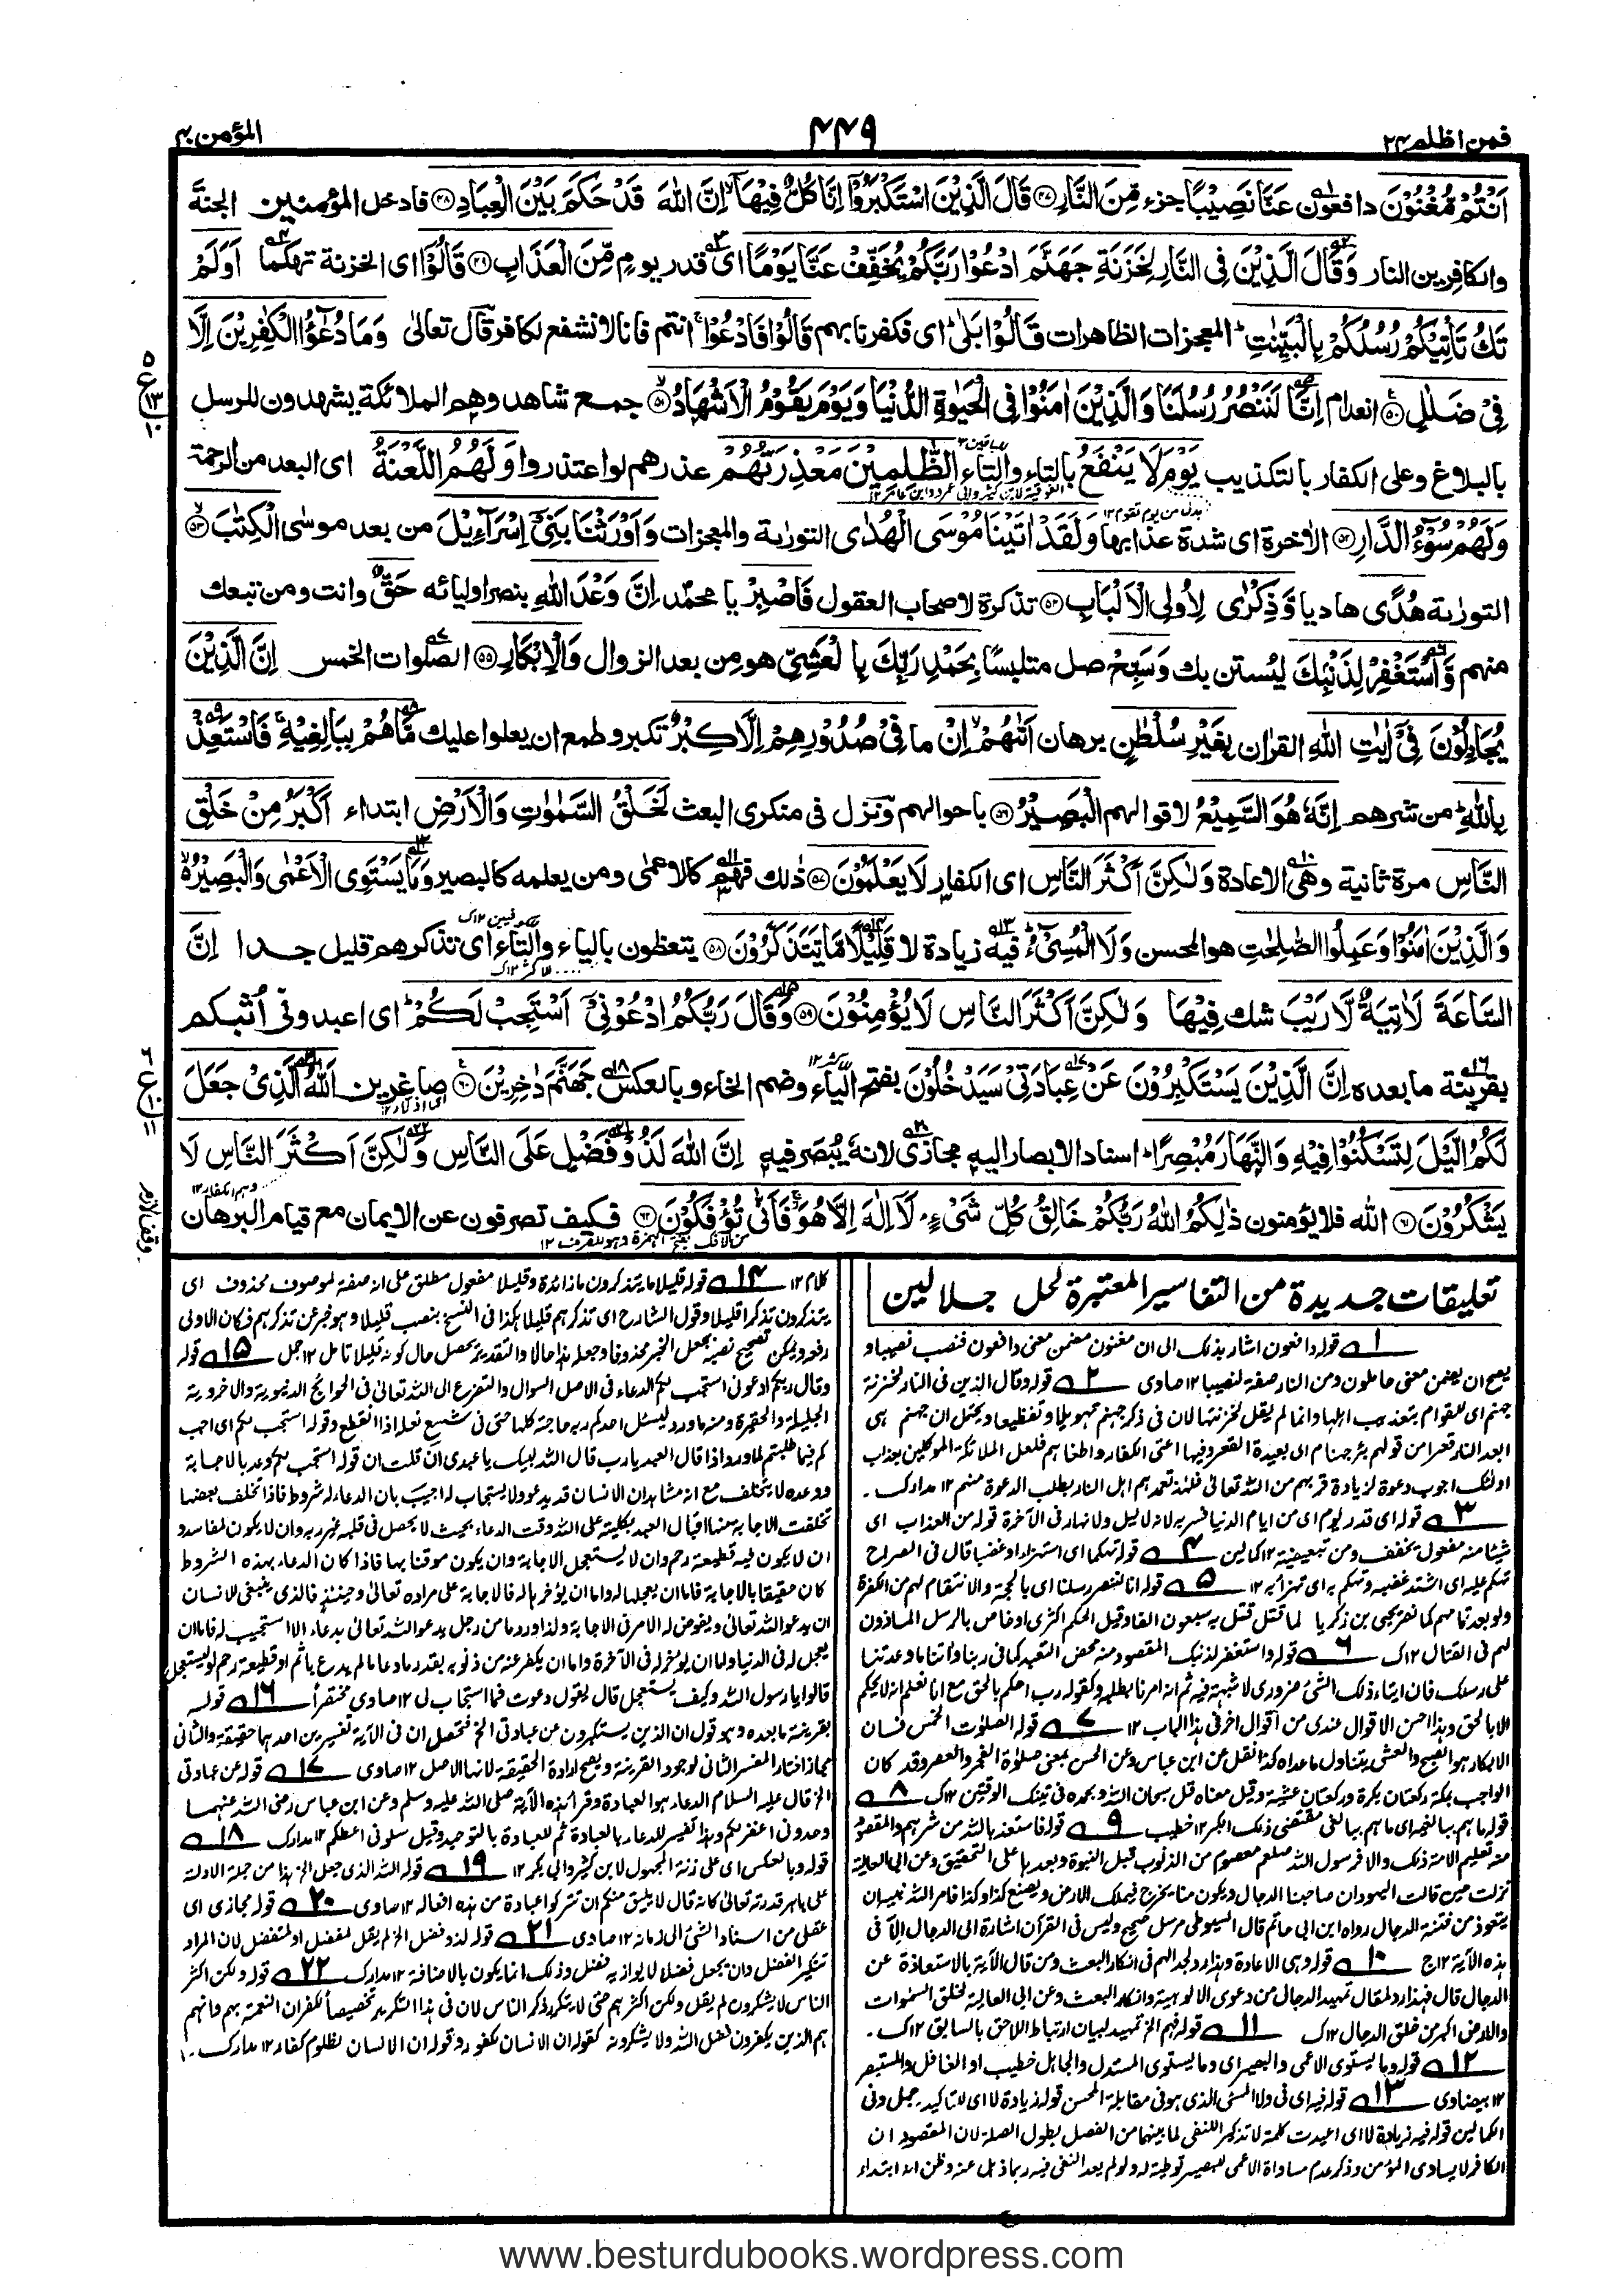 فمن اظلم ٢٤
٤٤٩
المؤمن ٤٠
اَنْتُمْ مُّغْنُوْنَ دافعون عَنَّا نَصِيْبًا جزء مِّنَ النَّارِ ﴿٤٧﴾ قَالَ الَّذِيْنَ اسْتَكْبَرُوْٓا اِنَّا كُلٌّ فِيْهَآ اِنَّ اللّٰهَ قَدْ حَكَمَ بَيْنَ الْعِبَادِ ﴿٤٨﴾ فادخل المؤمنين الجنة
والكافرين النار وَقَالَ الَّذِيْنَ فِى النَّارِ لِخَزَنَةِ جَهَنَّمَ ادْعُوْا رَبَّكُمْ يُخَفِّفْ عَنَّا يَوْمًا اى قدر يوم مِّنَ الْعَذَابِ ﴿٤٩﴾ قَالُوْٓا اى الخزنة تهكما اَوَلَمْ
تَكُ تَاْتِيْكُمْ رُسُلُكُمْ بِالْبَيِّنٰتِ ؕ المعجزات الظاهرات قَالُوْا بَلٰى ؕ اى فكفرنا بهم قَالُوْا فَادْعُوْا ۚ انتم فانا لا نشفع لكافر قال تعالى وَمَا دُعٰٓؤُا الْكٰفِرِيْنَ اِلَّا
فِىْ ضَلٰلٍ ﴿٥٠﴾ انعدام اِنَّا لَنَنْصُرُ رُسُلَنَا وَالَّذِيْنَ اٰمَنُوْا فِى الْحَيٰوةِ الدُّنْيَا وَيَوْمَ يَقُوْمُ الْاَشْهَادُ ﴿٥١﴾ جمع شاهد وهم الملائكة يشهدون للرسل
بالبلاغ وعلى الكفار بالتكذيب يَوْمَ لَا يَنْفَعُ بالتاء والياء الظّٰلِمِيْنَ مَعْذِرَتُهُمْ عذرهم لو اعتذروا وَلَهُمُ اللَّعْنَةُ اى البعد من الرحمة
وَلَهُمْ سُوْٓءُ الدَّارِ ﴿٥٢﴾ الاٰخرة اى شدة عذابها وَلَقَدْ اٰتَيْنَا مُوْسَى الْهُدٰى التورٰىة والمعجزات وَاَوْرَثْنَا بَنِىْٓ اِسْرَآءِيْلَ من بعد موسٰى الْكِتٰبَ ﴿٥٣﴾
التورٰىة هُدًى هاديا وَّذِكْرٰى لِاُولِى الْاَلْبَابِ ﴿٥٤﴾ تذكرة لاصحاب العقول فَاصْبِرْ يا محمّد اِنَّ وَعْدَ اللّٰهِ بنصر اوليائه حَقٌّ وانت ومن تبعك
منهم وَّاسْتَغْفِرْ لِذَنْبِكَ ليُستن بك وَسَبِّحْ صل متلبسًا بِحَمْدِ رَبِّكَ بِالْعَشِىِّ هو من بعد الزوال وَالْاِبْكَارِ ﴿٥٥﴾ الصلوات الخمس اِنَّ الَّذِيْنَ
يُجَادِلُوْنَ فِىْٓ اٰيٰتِ اللّٰهِ القراٰن بِغَيْرِ سُلْطٰنٍ برهان اَتٰىهُمْ ۙ اِنْ ما فِىْ صُدُوْرِهِمْ اِلَّا كِبْرٌ تكبر وطمع ان يعلوا عليك مَّا هُمْ بِبَالِغِيْهِ ۚ فَاسْتَعِذْ
بِاللّٰهِ ؕ من شرهم اِنَّهٗ هُوَ السَّمِيْعُ لاقوالهم الْبَصِيْرُ ﴿٥٦﴾ باحوالهم ونزل فى منكرى البعث لَخَلْقُ السَّمٰوٰتِ وَالْاَرْضِ ابتداء اَكْبَرُ مِنْ خَلْقِ
النَّاسِ مرة ثانية وهى الاعادة وَلٰكِنَّ اَكْثَرَ النَّاسِ اى الكفار لَا يَعْلَمُوْنَ ﴿٥٧﴾ ذٰلك فهم كالاعمٰى ومن يعلمه كالبصير وَمَا يَسْتَوِى الْاَعْمٰى وَالْبَصِيْرُ ۙ
وَالَّذِيْنَ اٰمَنُوْا وَعَمِلُوا الصّٰلِحٰتِ هو المحسن وَلَا الْمُسِىْٓءُ ؕ فيه زيادة لا قَلِيْلًا مَّا يَتَذَكَّرُوْنَ ﴿٥٨﴾ يتعظون بالياء والتاء اى تذكرهم قليل جدا اِنَّ
السَّاعَةَ لَاٰتِيَةٌ لَّا رَيْبَ شك فِيْهَا وَلٰكِنَّ اَكْثَرَ النَّاسِ لَا يُؤْمِنُوْنَ ﴿٥٩﴾ وَقَالَ رَبُّكُمُ ادْعُوْنِىْٓ اَسْتَجِبْ لَكُمْ ؕ اى اعبدونى اُثبكم
بقرينة ما بعده اِنَّ الَّذِيْنَ يَسْتَكْبِرُوْنَ عَنْ عِبَادَتِىْ سَيَدْخُلُوْنَ بفتح الياء وضم الخاء وبالعكس جَهَنَّمَ دٰخِرِيْنَ ﴿٦٠﴾ صاغرين اَللّٰهُ الَّذِىْ جَعَلَ
لَكُمُ الَّيْلَ لِتَسْكُنُوْا فِيْهِ وَالنَّهَارَ مُبْصِرًا ؕ اسناد الابصار اليه مجازى لانه يُبْصَر فيه اِنَّ اللّٰهَ لَذُوْ فَضْلٍ عَلَى النَّاسِ وَلٰكِنَّ اَكْثَرَ النَّاسِ لَا
يَشْكُرُوْنَ ﴿٦١﴾ الله فلا يؤمنون ذٰلِكُمُ اللّٰهُ رَبُّكُمْ خَالِقُ كُلِّ شَىْءٍ ۘ لَآ اِلٰهَ اِلَّا هُوَ ۚ فَاَنّٰى تُؤْفَكُوْنَ ﴿٦٢﴾ فكيف تصرفون عن الايمان مع قيام البرهان
تعليقات جديدة من التفاسير المعتبرة لحل جلالين
١ قوله دافعون اشار بذلك الى ان مغنون مضمن معنى دافعون فنصب نصيبا و
يصح ان يضمن معنى حاملون ومن النار صفة لنصيبا ١٢ صاوى ٢ قوله وقال الذين فى النار لخزنة
جهنم اى للقوام بتعذيب اهلها وانما لم يقل لخزنتها لان فى ذكر جهنم تهويلا وتفظيعا ويحتمل ان جهنم هى
ابعد النار قعرا من قولهم بئر جهنام اى بعيدة القعر وفيها اعتى الكفار واطغاهم فلعل الملائكة الموكلين بعذاب
اولئك اجوب دعوة لزيادة قربهم من الله تعالى فلهذا تعمدهم اهل النار بطلب الدعوة منهم ١٢ مدارك ۔
٣ قوله اى قدر يوم اى من ايام الدنيا فسر به لانه لا ليل ولا نهار فى الآخرة قوله من العذاب اى
شيئا منه مفعول يخفف ومن تبعيضية ١٢ كمالين ٤ قوله تهكما اى استهزاء وغضبا قال فى الصراح
تهكم عليه اى اشتد غضبه وتهكم به اى تهزأ به ١٢ ٥ قوله انا لننصر رسلنا اى بالحجة والانتقام لهم من الكفرة
ولو بعد مماتهم كما نصر يحيى بن زكريا لما قتل قتل به سبعون الفا وقيل الحكم اكثرى او خاص بالرسل الماذون
لهم فى القتال ١٢ ك ٦ قوله واستغفر لذنبك المقصود منه محض التعبد كما فى ربنا وآتنا ما وعدتنا
على رسلك فان ايتاء ذلك الشئ ضرورى لا شبهة فيه ثم انه امرنا بطلبه وكقوله رب احكم بالحق مع انا نعلم انه لا يحكم
الا بالحق وهذا احسن الاقوال عندى من اقوال اخر فى هذا الباب ١٢ ٧ قوله الصلوٰت الخمس فسان
الابكار هو الصبح والعشى يتناول ما عداه كذا نقل عن ابن عباس وعن الحسن بمعنى صلوٰة الفجر والعصر وقد كان
الواجب بمكة ركعتان بكرة وركعتان عشية وقيل معناه قل سبحان الله وبحمده فى تينك الوقتين ١٢ ك ٨
قوله ما هم ببالغيه اى ما هم ببالغى مقتضى ذلك الكبر ١٢ خطيب ٩ قوله فاستعذ بالله من شرهم والمقصود
منه تعليم الامة ذلك والا فرسول الله صلعم معصوم من الذنوب قبل النبوة وبعدها على التحقيق وعن ابى العالية
نزلت حين قالت اليهود ان صاحبنا الدجال ويكون منا يخرج فيملك الارض ويصنع كذا وكذا فامر الله نبيه ان
يتعوذ من فتنة الدجال رواه ابن ابى حاتم قال السيوطى مرسل صحيح وليس فى القرآن اشارة الى الدجال الا فى
هذه الآية ١٢ ج ١٠ قوله وهى الاعادة وهذا رد لجدالهم فى انكار البعث ومن قال الآية بالاستعاذة عن
الدجال قال فهذا رد لمقال تمهيد الدجال من دعوى الالوهية وانكار البعث وعن ابى العالية لخلق السموات
والارض اكبر من خلق الدجال ١٢ ك ١١ قوله فهم الخ تمهيد لبيان ارتباط اللاحق بالسابق ١٢ ك ۔
١٢ قوله وما يستوى الاعمى والبصير اى وما يستوى المستدل والجاهل خطيب او الغافل والمستبصر
١٢ بيضاوى ١٣ قوله فيه اى فى ولا المسئ الذى هو فى مقابلة المحسن قوله زيادة لا اى للتاكيد ۔ جمل وفى
الكمالين قوله فيه زيادة لا اى اعيدت كلمة لا تذكير اللنفى لما بينهما من الفصل بطول الصلة لان المقصود ان
الكافر لا يساوى المؤمن وذكر عدم مساواة الاعمى للبصير توطية له ولو لم يعد النفى فيه ربما ذهل عنه وظن انه ابتداء
كلام ١٢ ١٤ قوله قليلا ما يتذكرون ما زائدة وقليلا مفعول مطلق على انه صفة لموصوف محذوف اى
يتذكرون تذكرا قليلا وقول الشارح اى تذكرهم قليلا هكذا فى النسخ بنصب قليلا وهو خبر عن تذكرهم فكان الاولى
رفعه ويمكن تصحيح نصبه بجعل الخبر محذوفا وجعله هذا حالا والتقدير يحصل حال كونه قليلا تامل ١٢ جمل ١٥ قوله
وقال ربكم ادعونى استجب لكم الدعاء فى الاصل السوال والتضرع الى الله تعالى فى الحوائج الدنيوية والاخروية
الجليلة والحقيرة ومنه ما ورد ليسئل احدكم ربه حاجته كلها حتى فى شسع نعله اذا انقطع وقوله استجب لكم اى اجب
لكم فيما طلبتم لما ورد اذا قال العبد يا رب قال الله لبيك يا عبدى ان قلت ان قوله استجب لكم وعد بالاجابة
ووعده لا يتخلف مع انه مشاهد ان الانسان قد يدعو ولا يستجاب له اجيب بان الدعاء له شروط فاذا تخلف بعضها
تخلفت الاجابة منها اقبال العبد بكليته على الله وقت الدعاء بحيث لا يحصل فى قلبه غير ربه وان لا يكون لمفاسد و
ان لا يكون فيه قطيعة رحم وان لا يستعجل الاجابة وان يكون موقنا بها فاذا كان الدعاء بهذه الشروط
كان حقيقا بالاجابة فاما ان يعجلها له واما ان يؤخرها له فالاجابة على مراده تعالى وحينئذ فالذى ينبغى للانسان
ان يدعو الله تعالى ويفوض له الامر فى الاجابة ولذا ورد ما من رجل يدعو الله تعالى بدعاء الا استجيب له فاما ان
يعجل له فى الدنيا واما ان يؤخر له فى الآخرة واما ان يكفر عنه من ذنوبه بقدر ما دعا ما لم يدع باثم او قطيعة رحم او يستعجل
قالوا يا رسول الله وكيف يستعجل قال يقول دعوت فما استجاب لى ١٢ صاوى مختصراً ١٦ قوله
بقرينة ما بعده وهو قوله ان الذين يستكبرون عن عبادتى الخ فتحصل ان فى الآية تفسيرين احدهما حقيقة والثانى
مجاز اختار المفسر الثانى لوجود القرينة ويصح ارادة الحقيقة لانها الاصل ١٢ صاوى ١٧ قوله عن عبادتى
الخ قال عليه السلام الدعاء هو العبادة وقرأ هذه الآية صلى الله عليه وسلم وعن ابن عباس رضى الله عنهما
وحدونى اغفر لكم وهذا تفسير للدعاء بالعبادة ثم للعبادة بالتوحيد وقيل سلونى اعطكم ١٢ مدارك ١٨
قوله وبالعكس اى على زنة المجهول لابن كثير وابى بكر ١٢ ١٩ قوله الله الذى جعل الخ هذا من جملة الادلة
على باهر قدرته تعالى كانه قال لا يليق منكم ان تتركوا عبادة من هذه افعاله ١٢ صاوى ٢٠ قوله مجازى اى
عقلى من اسناد الشئ الى زمانه ١٢ صاوى ٢١ قوله لذو فضل الخ لم يقل لمفضل او لمتفضل لان المراد
تنكير الفضل وان يجعل فضلا لا يوازيه فضل وذلك انما يكون بالاضافة ١٢ مدارك ٢٢ قوله ولكن اكثر
الناس لا يشكرون لم يقل ولكن اكثرهم حتى لا يتكرر ذكر الناس لان فى هذا التكرير تخصيصاً لكفران النعمة بهم وانهم
هم الذين يكفرون فضل الله ولا يشكرونه كقوله ان الانسان لكفور وقوله ان الانسان لظلوم كفار ١٢ مدارك ۔
www.besturdubooks.wordpress.com